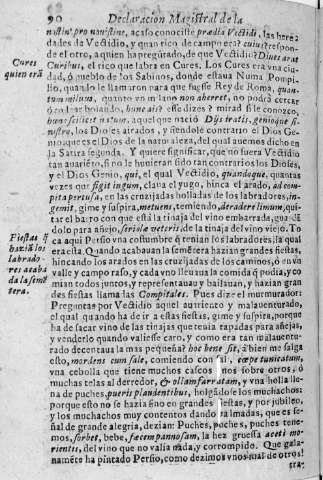 90 Declaracion Magistral de la
nostin' pro nauistine, acaso conociste prædia Vectidi, las here
dades da Vectidio, y quan rico de campo era? cuius? respon-
de el otro, a quien ha preguntado, de que Vectidio? Diues arat
Curibus, el rico que labra en Cures. Los Cures era vna ciu-
Cures
quien erã
dad, ò pueblo de los Sabinos, donde estaua Numa Pompi-
lio, quando le llamaron para que fuesse Rey de Roma, quan-
tum miluus, quanto vn milano non aberret, no podrà cercar
ò rodear bolando, hunc ais? esse dizes? mirad si le conozco,
natum, aquel que naciò Dijs iratis, genioque si-
nistro, los Dioses airados, y siendole contrario el Dios Ge-
nio que es el Dios de la naturaleza, del qual auemos dicho en
la Satira segunda. Y quiere significar, que no fuera Vectidio
tan auariéto, si no le huuieran sido tan contrarios los Dioses,
y el Dios Genio, qui, el qual Vectidio, quandoque, quantas
vezes que figit iugum, claua el yugo, hinca el arado, ad com-
pita pertusa, en las cruzijadas holladas de los labradores, in-
gemit, gime y suspira, metuens, temiendo, deradere limum, qui-
tar el barro con que està la tinaja del vino embarrada, guardã
dolo para añejo, seriolæ veteris, de la tinaja del vino viejo. To
ca aqui Persio vna costumbre q̃ tenian los labradores; la qual
Fiestas q̃
haziã los
labrado-
res acaba
da la sime
tera.
era esta. Quando acabauan la sementera hazian grandes fiestas,
hincando los arados en las cruzijadas de los caminos, ò en vn
valle y campo raso, y cada vno lleuaua la comida q̃ podia, y co
mian todos juntos, y representauan y bailauan, y hazian gran
des fiestas llama las Compitales. Pues dize el murmurador:
Preguntas por Vectidio aquel auarieto y malauenturado,
el qual quando ha de ir a estas fiestas, gime y suspira, porque
ha de sacar vino de las tinajas que tenia tapadas para añejas,
y venderlo quando valiesse caro, y como era tan malauentu-
rado decentaua la mas pequeña? hoc bene sit, à bien me salga
esto, mordens cum sale, comiendo con sal, cæpe tunicatum,
vna cebolla que tiene muchos cascos vnos sobre otros, ò
muchas telas al derredor, & ollam farratam, y vna holla lle-
na de puches, pueris plaudentibus, holgandose los muchachos:
porque esto no se hazia sino en grandes fiestas, y por jubileo,
y los muchachos muy contentos dando palmadas, que es se-
ñal de grande alegria, dezian: Puches, puches, puches tene-
mos, sorbet, bebe, fæcem pannosam, la hez gruessa aceti mo-
rientis, del vino que no valia nada, y corrompido. Que gala-
namẽte ha pintado Persio, como dezimos vnos mal de otros!